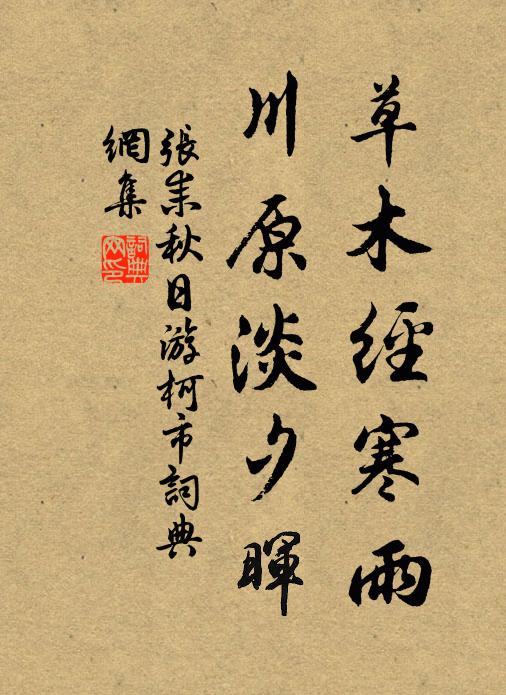 草木經寒雨
川原淡夕暉
張耒秋日游柯市詞典
網集
詞典
网印